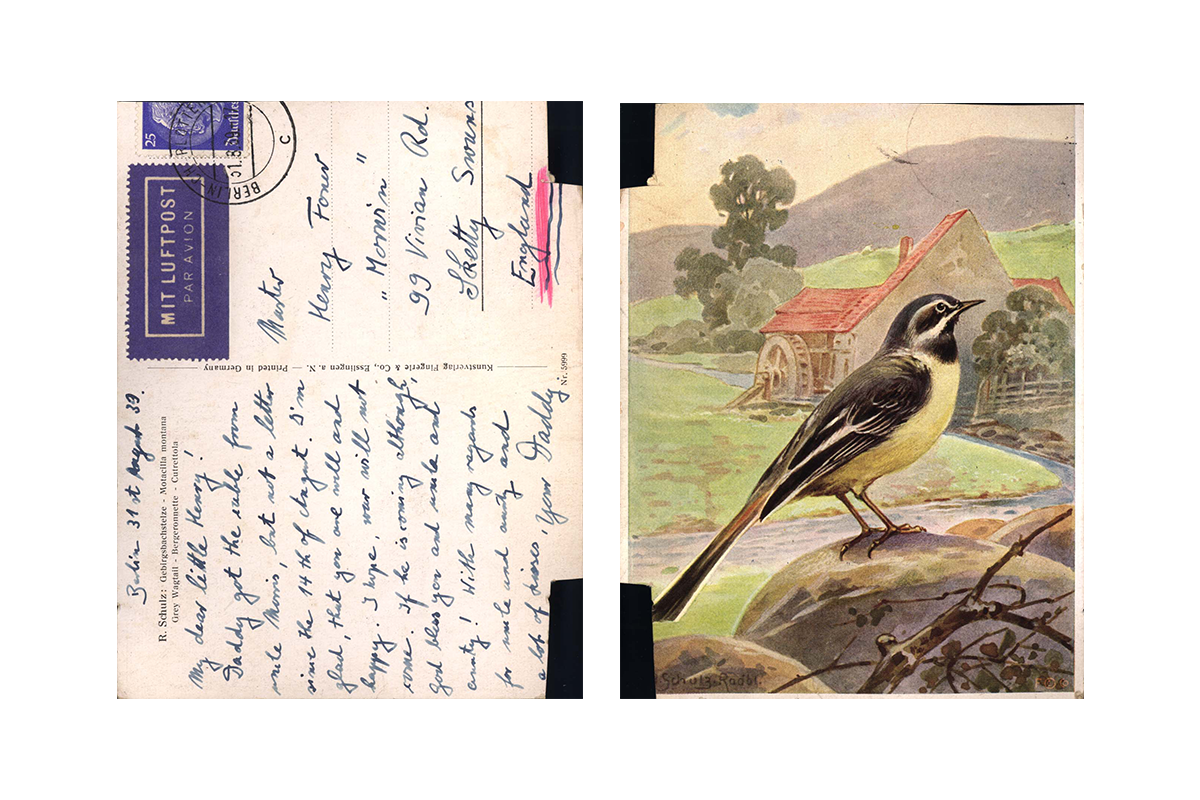 Berlin 31st August 39.
R. Schulz: Gebirgsbachstelze - Motacilla montana
Grey Wagtail - Bergeronnette - Cutrettola
My dear little Henry!
Daddy got the cable from
uncle Morris, but not a letter
since the 14th of August. I'm
glad, that you are well and
happy. I hope, war will not
come. If he is coming although,
God bless you and uncle and
aunty! With many regards
for uncle and aunty and
a lot of kisses, your Daddy.
Kunstverlag Fingerle & Co., Esslingen a. N. — Printed in Germany
Nr. 5999
25
Deutsches
BERLIN-CHARLOTTE
31.8
c
MIT LUFTPOST
PAR AVION
Master
Henry Foner
"Morwin"
99 Vivian Rd.
Sketty Swans
England
Schulz-Radbl.